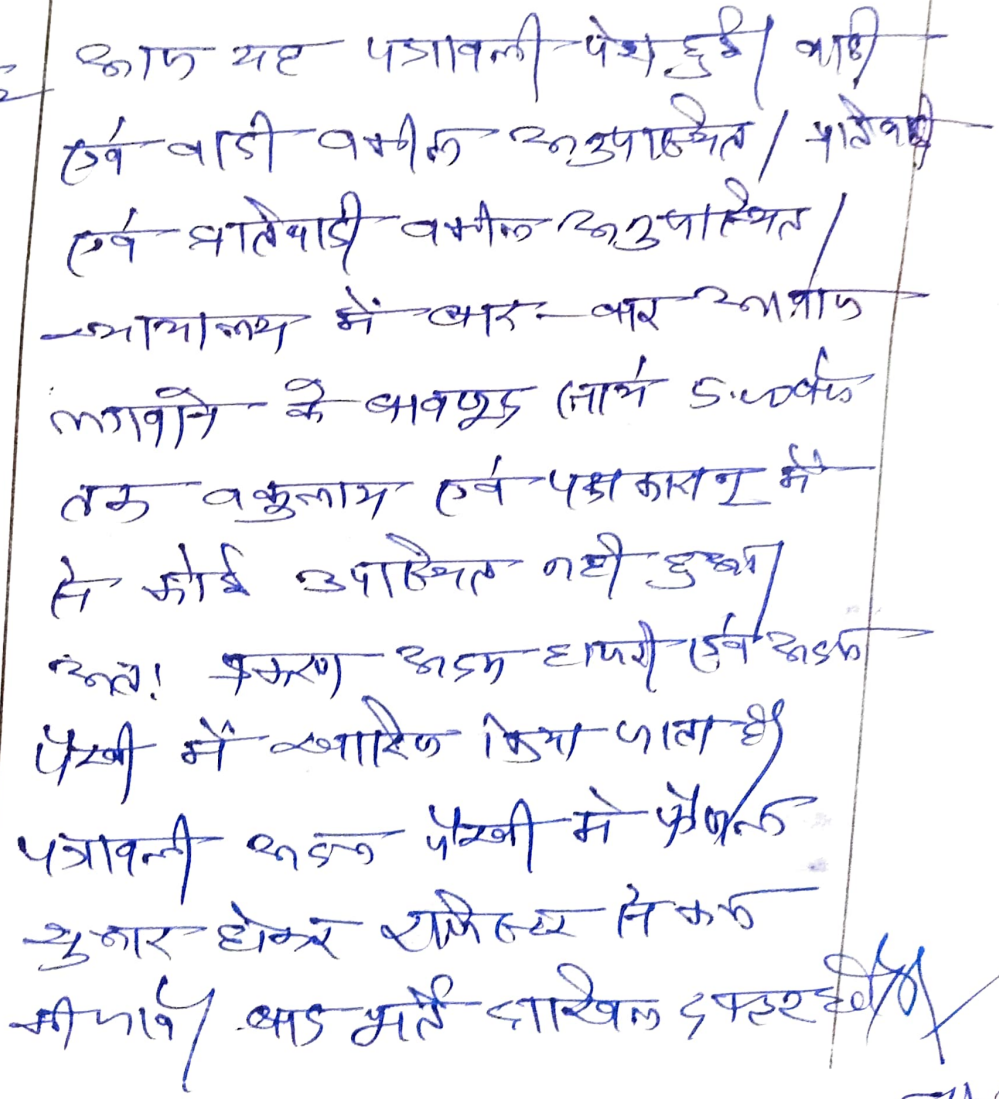 आज यह पत्रावली पेश हुई। वादी
एवं वादी वकील अनुपस्थित। प्रतिवादी
एवं प्रतिवादी वकील अनुपस्थित।
न्यायालय में बार-बार आवाज
लगवाने के बावजूद सायं 5.00 बजे
तक वकुलाय एवं पक्षकारान् में
से कोई उपस्थित नहीं हुआ।
अतः प्रकरण अदम हाजरी एवं अदम
पैरवी में खारिज किया जाता है।
पत्रावली अदम पैरवी में फैसल
शुमार होकर रजिस्टर से कम
की जावे। बाद पूर्ति दाखिल दफ्तर हो।